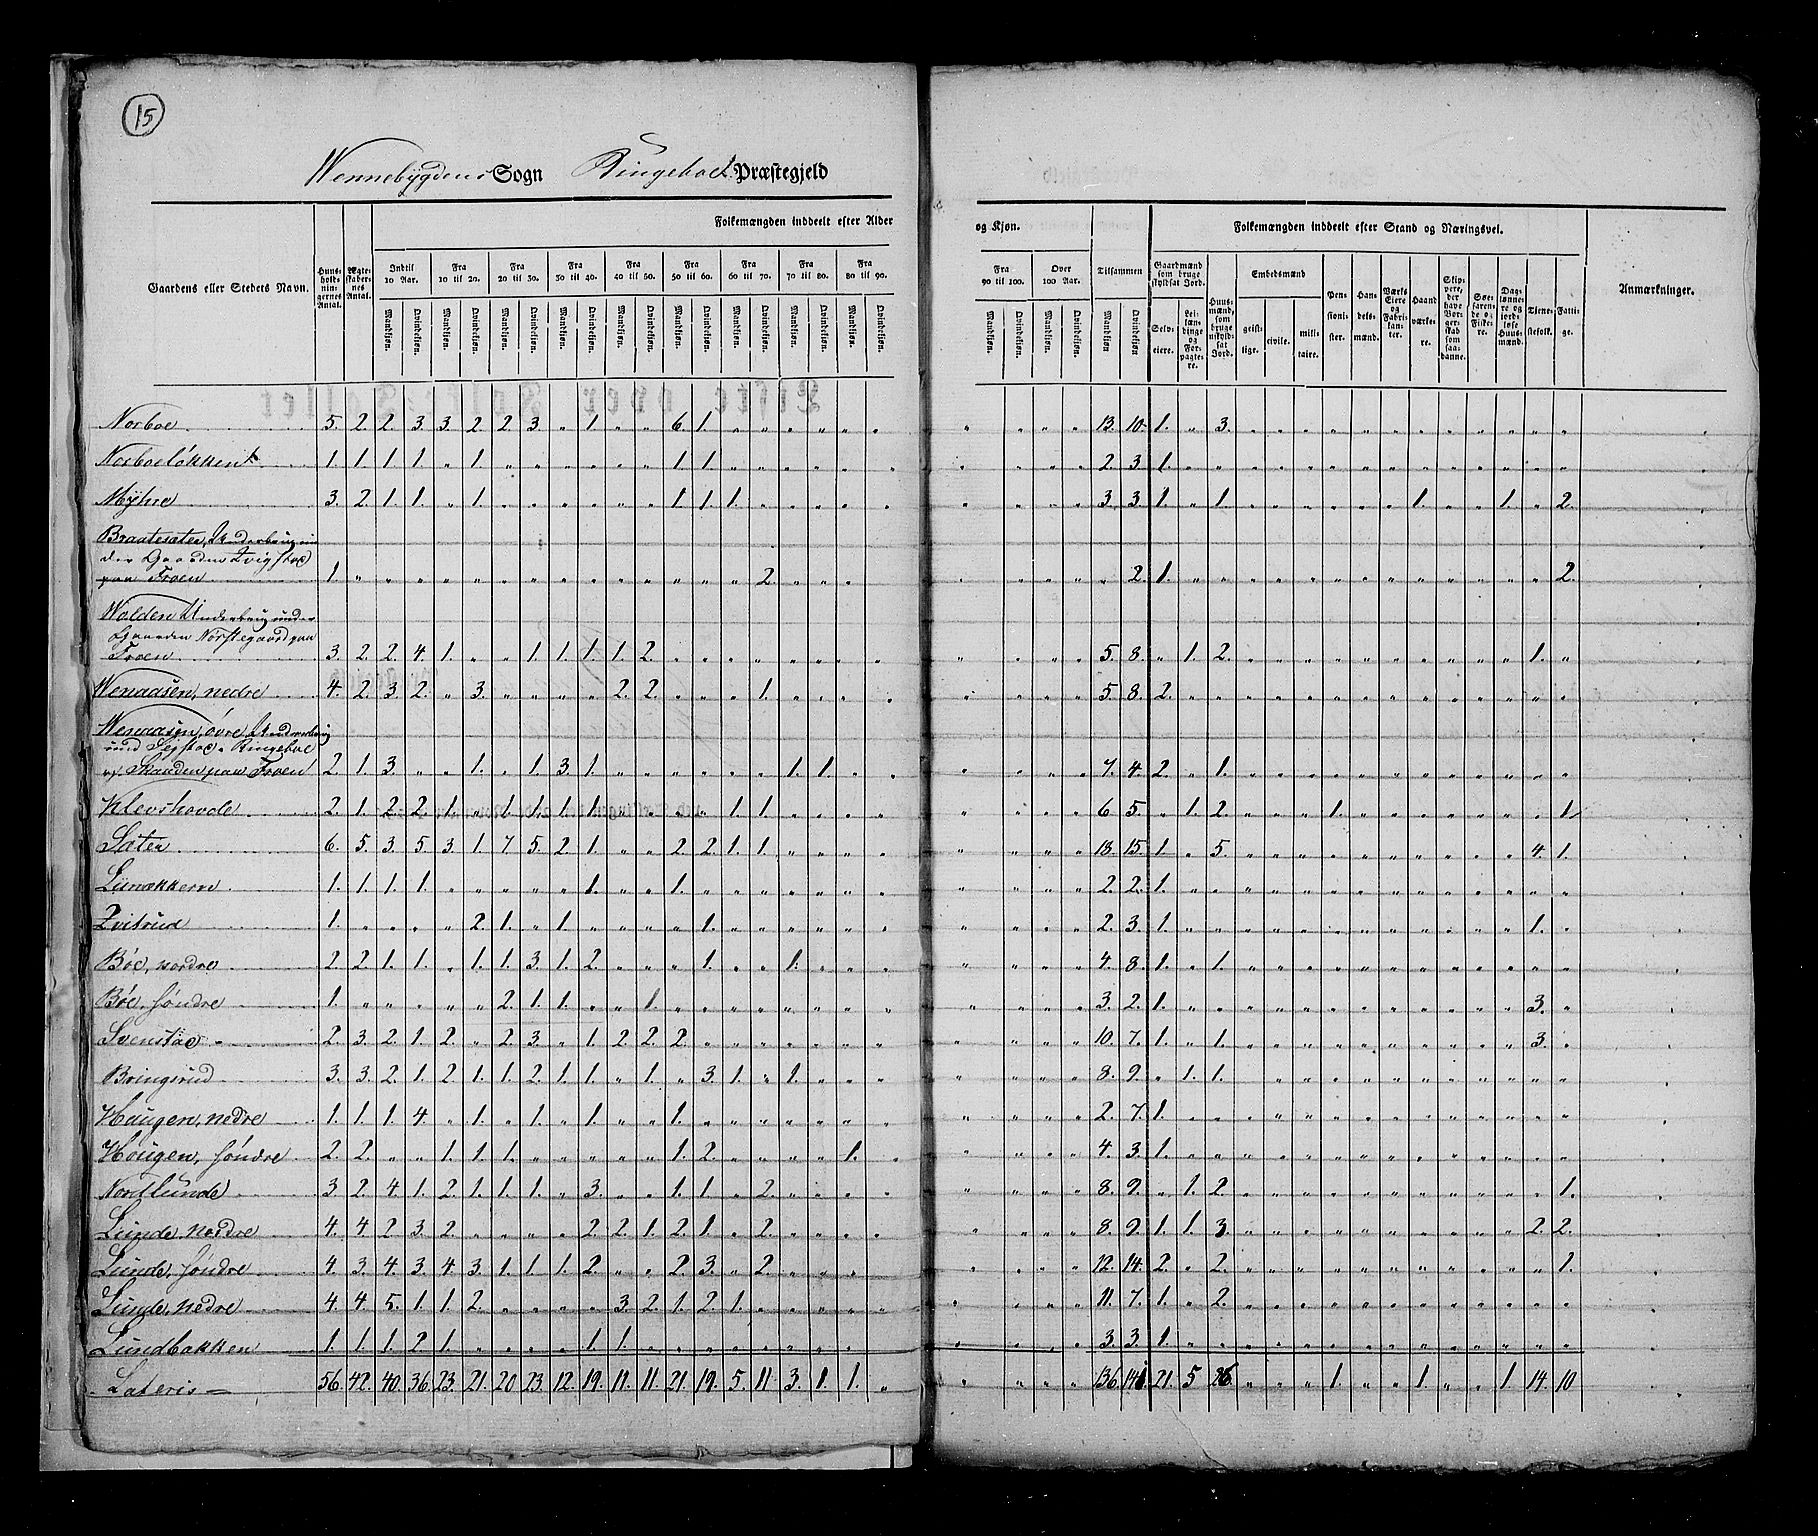 15
Wennebygdens Sogn Ringeboe Præstegjeld
Folkemængden inddeelt efter Alder
og Kjøn.
Folkemængden inddeelt efter Stand og Næringsvei.
Gaardens eller Stedets Navn.
Huus-holdningernes Antal.
Ægteskabernes Antal.
Indtil 10 Aar.
Fra 10 til 20.
Fra 20 til 30.
Fra 30 til 40.
Fra 40 til 50.
Fra 50 til 60.
Fra 60 til 70.
Fra 70 til 80.
Fra 80 til 90.
Fra 90 til 100.
Over 100 Aar.
Tilsammen
Mandkjøn. Qvindekjøn.
Gaardmænd som bruge skyldsat Jord.
Selveiere.
Leilændinge og Forpagtere.
Huusmænd, som bruge uskyldsat Jord.
Embedsmænd
geistlige.
civile.
militaire.
Pensionister.
Handelsmænd.
Værks Eiere og Fabrikanter.
Haandværkere.
Skippere, der have Borgerskab som saadanne.
Søefarende og Fiskere.
Daglønnere og jordløse Huusmænd.
Tjenestefolk.
Fattige.
Anmærkninger.
Norboe 5. 2. 2. 3. 3. 2. 2. 3. „ 1. „ „ 6. 1. „ „ „ „ „ „ 13. 10. 1. „ 3.
Norboeløkken 1. 1. 1. 1. „ 1. „ „ „ „ „ „ 1. 1. „ „ „ „ „ „ 2. 3. 1.
Myhre 3. 2. 1. 1. „ 1. „ „ „ „ „ „ 1. 1. 1. „ „ „ „ „ 3. 3. 1. „ 1. 1. 1. 2.
Braatesæter, Underbrug un
der Gaarden
paa Froen 1. „ „ „ „ „ „ „ „ „ „ „ „ „ „ 2. „ „ „ 2. 1. 2.
Wolden Underbrug under
Gaarden Nørstegaard paa
Froen 3. 2. 2. 4. 1. „ „ 1. 1. 1. 1. 2. „ „ „ „ „ „ „ „ 5. 8. „ 1. 2. 1. „
Wenaasen, nedre 4. 2. 3. 2. „ 3. „ „ „ „ 2. 2. „ „ „ 1. „ „ „ „ 5. 8. 2.
Wenaasen, øvre, Underbrug
Ringeboe
og Skaaden paa Froen 2. 1. 3. „ „ 1. „ 1. 3. 1. „ „ „ „ „ „ 1. 1. „ „ 7. 4. 2. „ 1.
Klevshovde 2. 1. 2. 2. 1. „ 1. 1. 1. 1. „ „ „ „ 1. 1. „ „ „ „ 6. 5. „ 1. 2. 1. 1.
Sæter 6. 5. 3. 5. 3. 1. 7. 5. 2. 1. „ „ 2. 2. 1. 1. „ „ „ „ 18. 15. 1. „ 5. 4. 1.
Lunækkern 1. 1. 1. 1. „ „ „ „ „ 1. „ „ 1. „ „ „ „ „ „ „ 2. 2. 1.
1. „ „ „ „ 2. 1. „ 1. „ „ „ „ 1. „ „ „ „ „ „ 2. 3. 1. 1. „
Bøe, nordre 2. 2. 1. 1. „ 1. 1. 3. 1. 2. „ „ „ 1. „ „ 1. „ „ „ 4. 8. 1. „ 1.
Bøe, søndre 1. „ „ „ „ „ 2. 1. 1. „ „ 1. „ „ „ „ „ „ „ „ 3. 2. 1. 3. „
Svenstad 2. 3. 2. 1. 2. „ 2. 3. „ 1. 2. 2. 2. „ „ „ „ „ „ „ 10. 7. 1. „ 1. 3. „
Bringsrud 3. 3. 2. 1. 2. 1. 1. 2. 1. 1. „ 1. „ 3. 1. „ 1. „ „ „ 8. 9. „ 1. 1.
Haugen, nedre 1. 1. 1. 4. „ 1. „ 1. „ 1. „ „ 1. „ „ „ „ „ „ „ 2. 7. 1.
Haugen, søndre 2. 2. „ „ 1. 1. 1. „ „ „ „ „ 1. 2. „ „ „ „ 1. „ 4. 3. 1.
Nordlunde 3. 2. 4. 1. 2. 1. 1. 1. „ 3. „ „ 1. 1. „ 2. „ „ „ „ 8. 9. „ 1. 2. 1.
Lunde, nordre 4. 4. 2. 3. 2. „ „ „ „ 2. 2. 1. 2. 1. „ 2. „ „ „ „ 8. 9. 1. 1. 3. 2. 2.
Lunde, søndre 4. 3. 4. 3. 4. 3. 1. 1. 1. 2. „ „ 2. 3. „ 2. „ „ „ 12. 14. 2. „ 2. 1.
Lunde, nedre 4. 4. 5. 1. 1. 2. „ „ „ „ 3. 2. 1. 2. 1. „ „ „ „ „ 11. 7. 1. „ 2.
Lundbakken 1. 1. 1. 2. 1. „ „ „ „ 1. 1. „ „ „ „ „ „ „ „ 3. 3. 1.
Lateris 56. 42. 40. 36. 23. 21. 20 23. 12. 19. 11. 11. 21. 19. 5. 11. 3. 1. 1. „ 136. 141 21. 5 26. 1. 1. 1. 14. 10